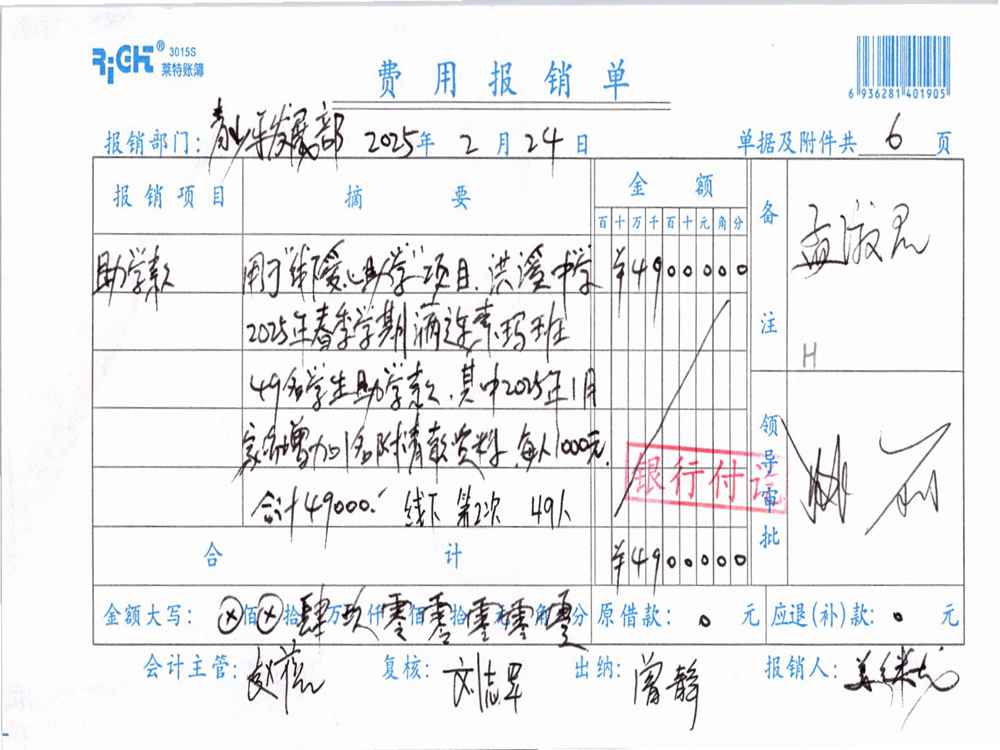 RiCH® 3015S
莱特账簿
费用报销单
6 936281 401905
报销部门：青少年发展部 2025年 2月24日 单据及附件共 6 页
报销项目 摘要 金额 备注
百十万千百十元角分
助学款 用于“线下爱心助学”项目，洪溪中学 ¥4900000
2025年春季学期 班
49名学生助学款，其中2025年1月
增加1名附请款资料，每人1000元，
合计49000. 线下第2次 49人
H
银行付讫
领导审批
合计 ¥4900000
金额大写：ⓧ佰ⓧ拾肆万玖仟零佰零拾零元零角零分 原借款：0元 应退（补）款：0元
会计主管：赵 复核：刘志军 出纳：曾静 报销人：姜